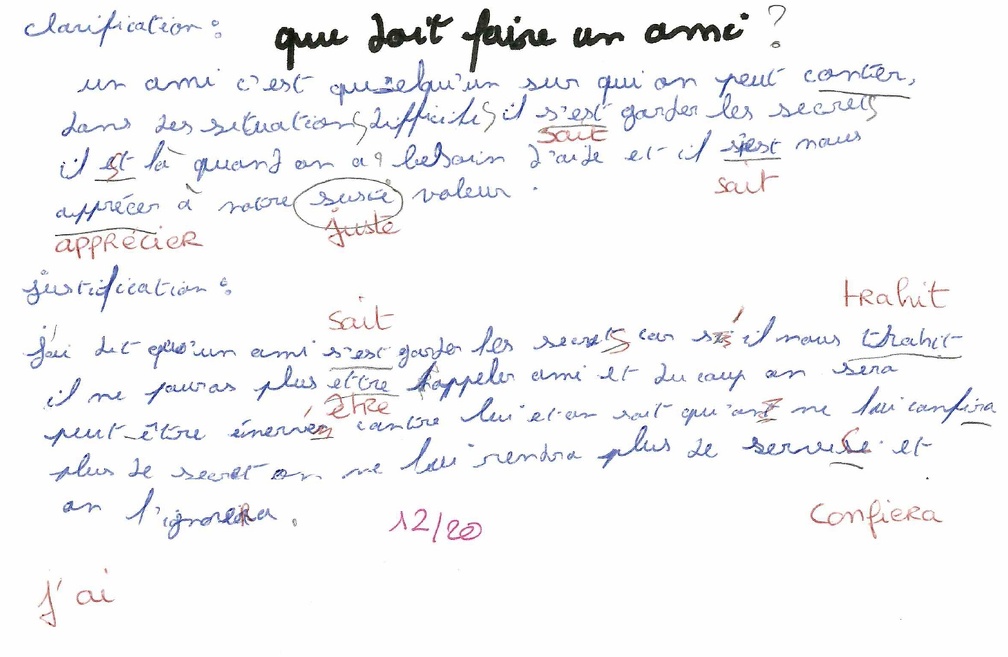 clarification :
que doit faire un ami ?
un ami c'est quelqu'un sur qui on peut conter,
dans des situations difficiles, il s'est garder les secrets
sait
il est là quand on a besoin d'aide et il s'est nous
sait
apprécer à notre suste valeur .
APPRÉCIER
juste
justification :
trahit
sait
j'ai dit qu'un ami s'est garder les secrets car s'il nous thrahit
il ne pouras plus ettre happeler ami et du coup on sera
être
peut-être énervés contre lui et on sait qu'on ne lui confira
plus de secret on ne lui rendra plus de service et
on l'ignorera .
12/20
Confiera
j'ai